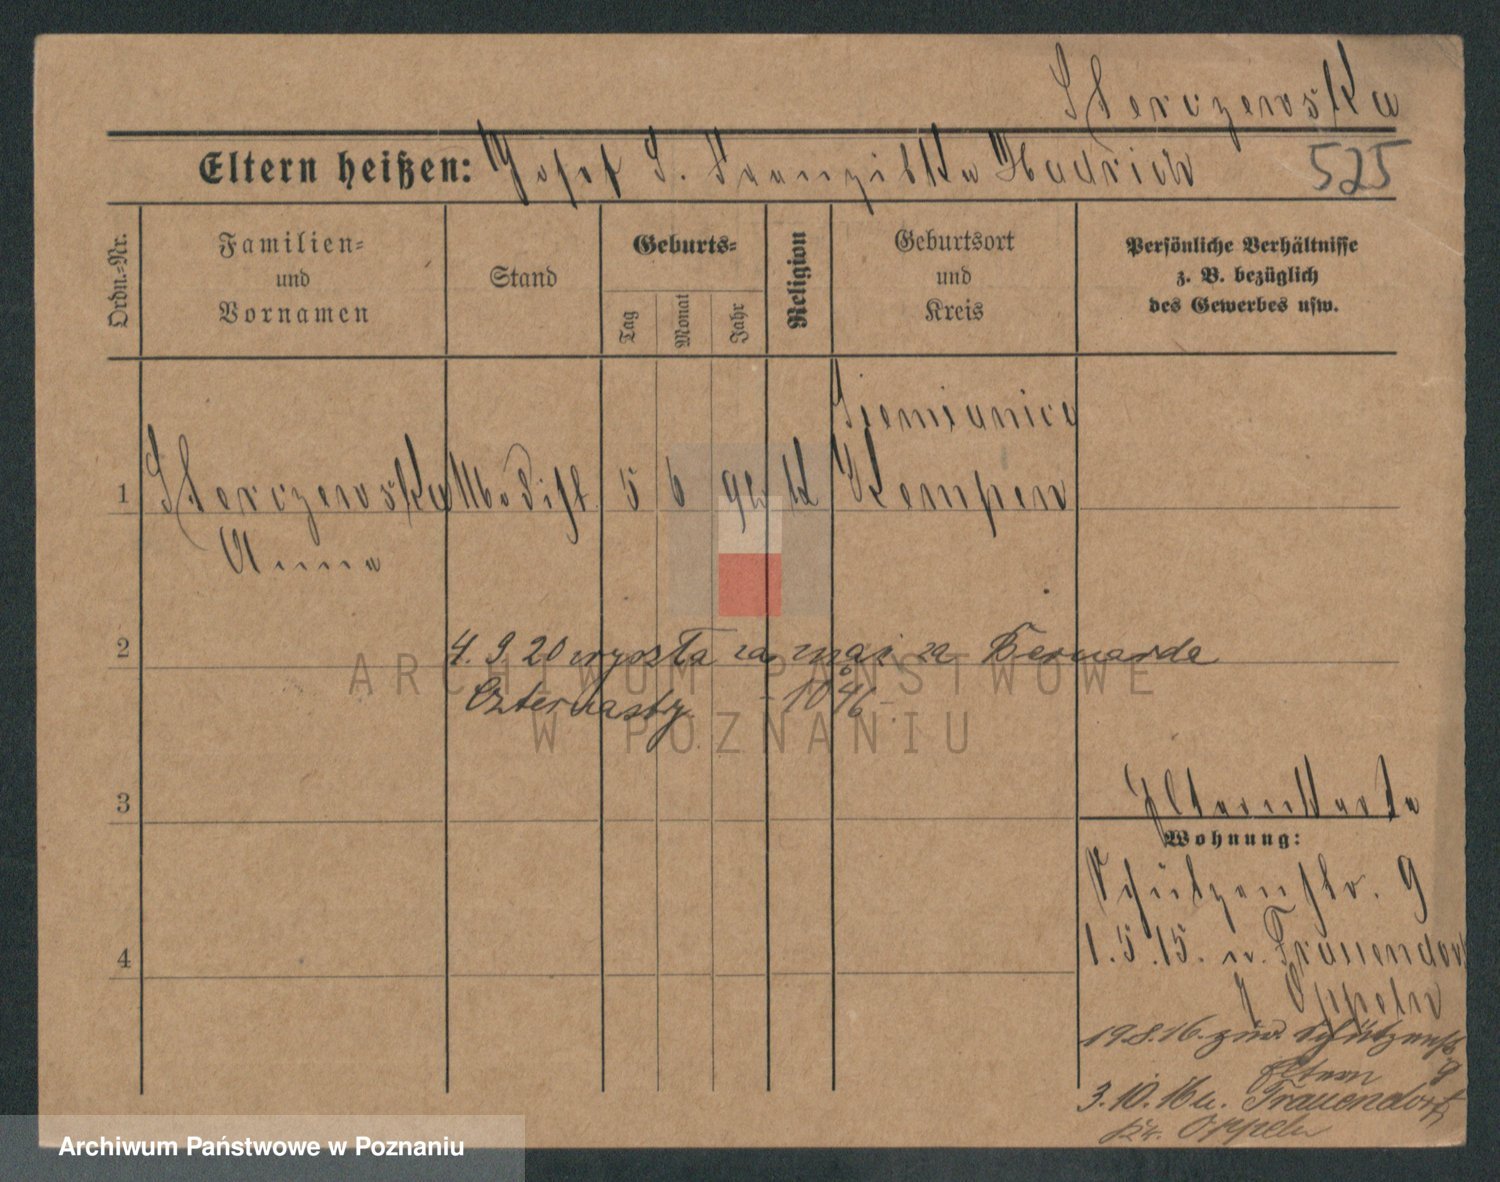 Sterczewska
Eltern heißen: Josef S. Franziska Hadrich
525
Ordn.-Nr.
Familien- und Vornamen
Stand
Geburts-
Tag
Monat
Jahr
Religion
Geburtsort und Kreis
Persönliche Verhältnisse
z. B. bezüglich
des Gewerbes usw.
Siemianice
1 Sterczewska Modist. 5 6 K Kempen
Anna
2 4. 9. 20 wyszła za mąż za Bernarda
Czternasty
3
Elternkarte
Wohnung:
Schützenstr. 9
4
1.5.15. n. Frauendorf
Oppeln
19.8.16. zur. Schützenstr 9
Eltern
3.10.16 n. Frauendorf
Kr. Oppeln
ARCHIWUM PAŃSTWOWE
W POZNANIU
Archiwum Państwowe w Poznaniu